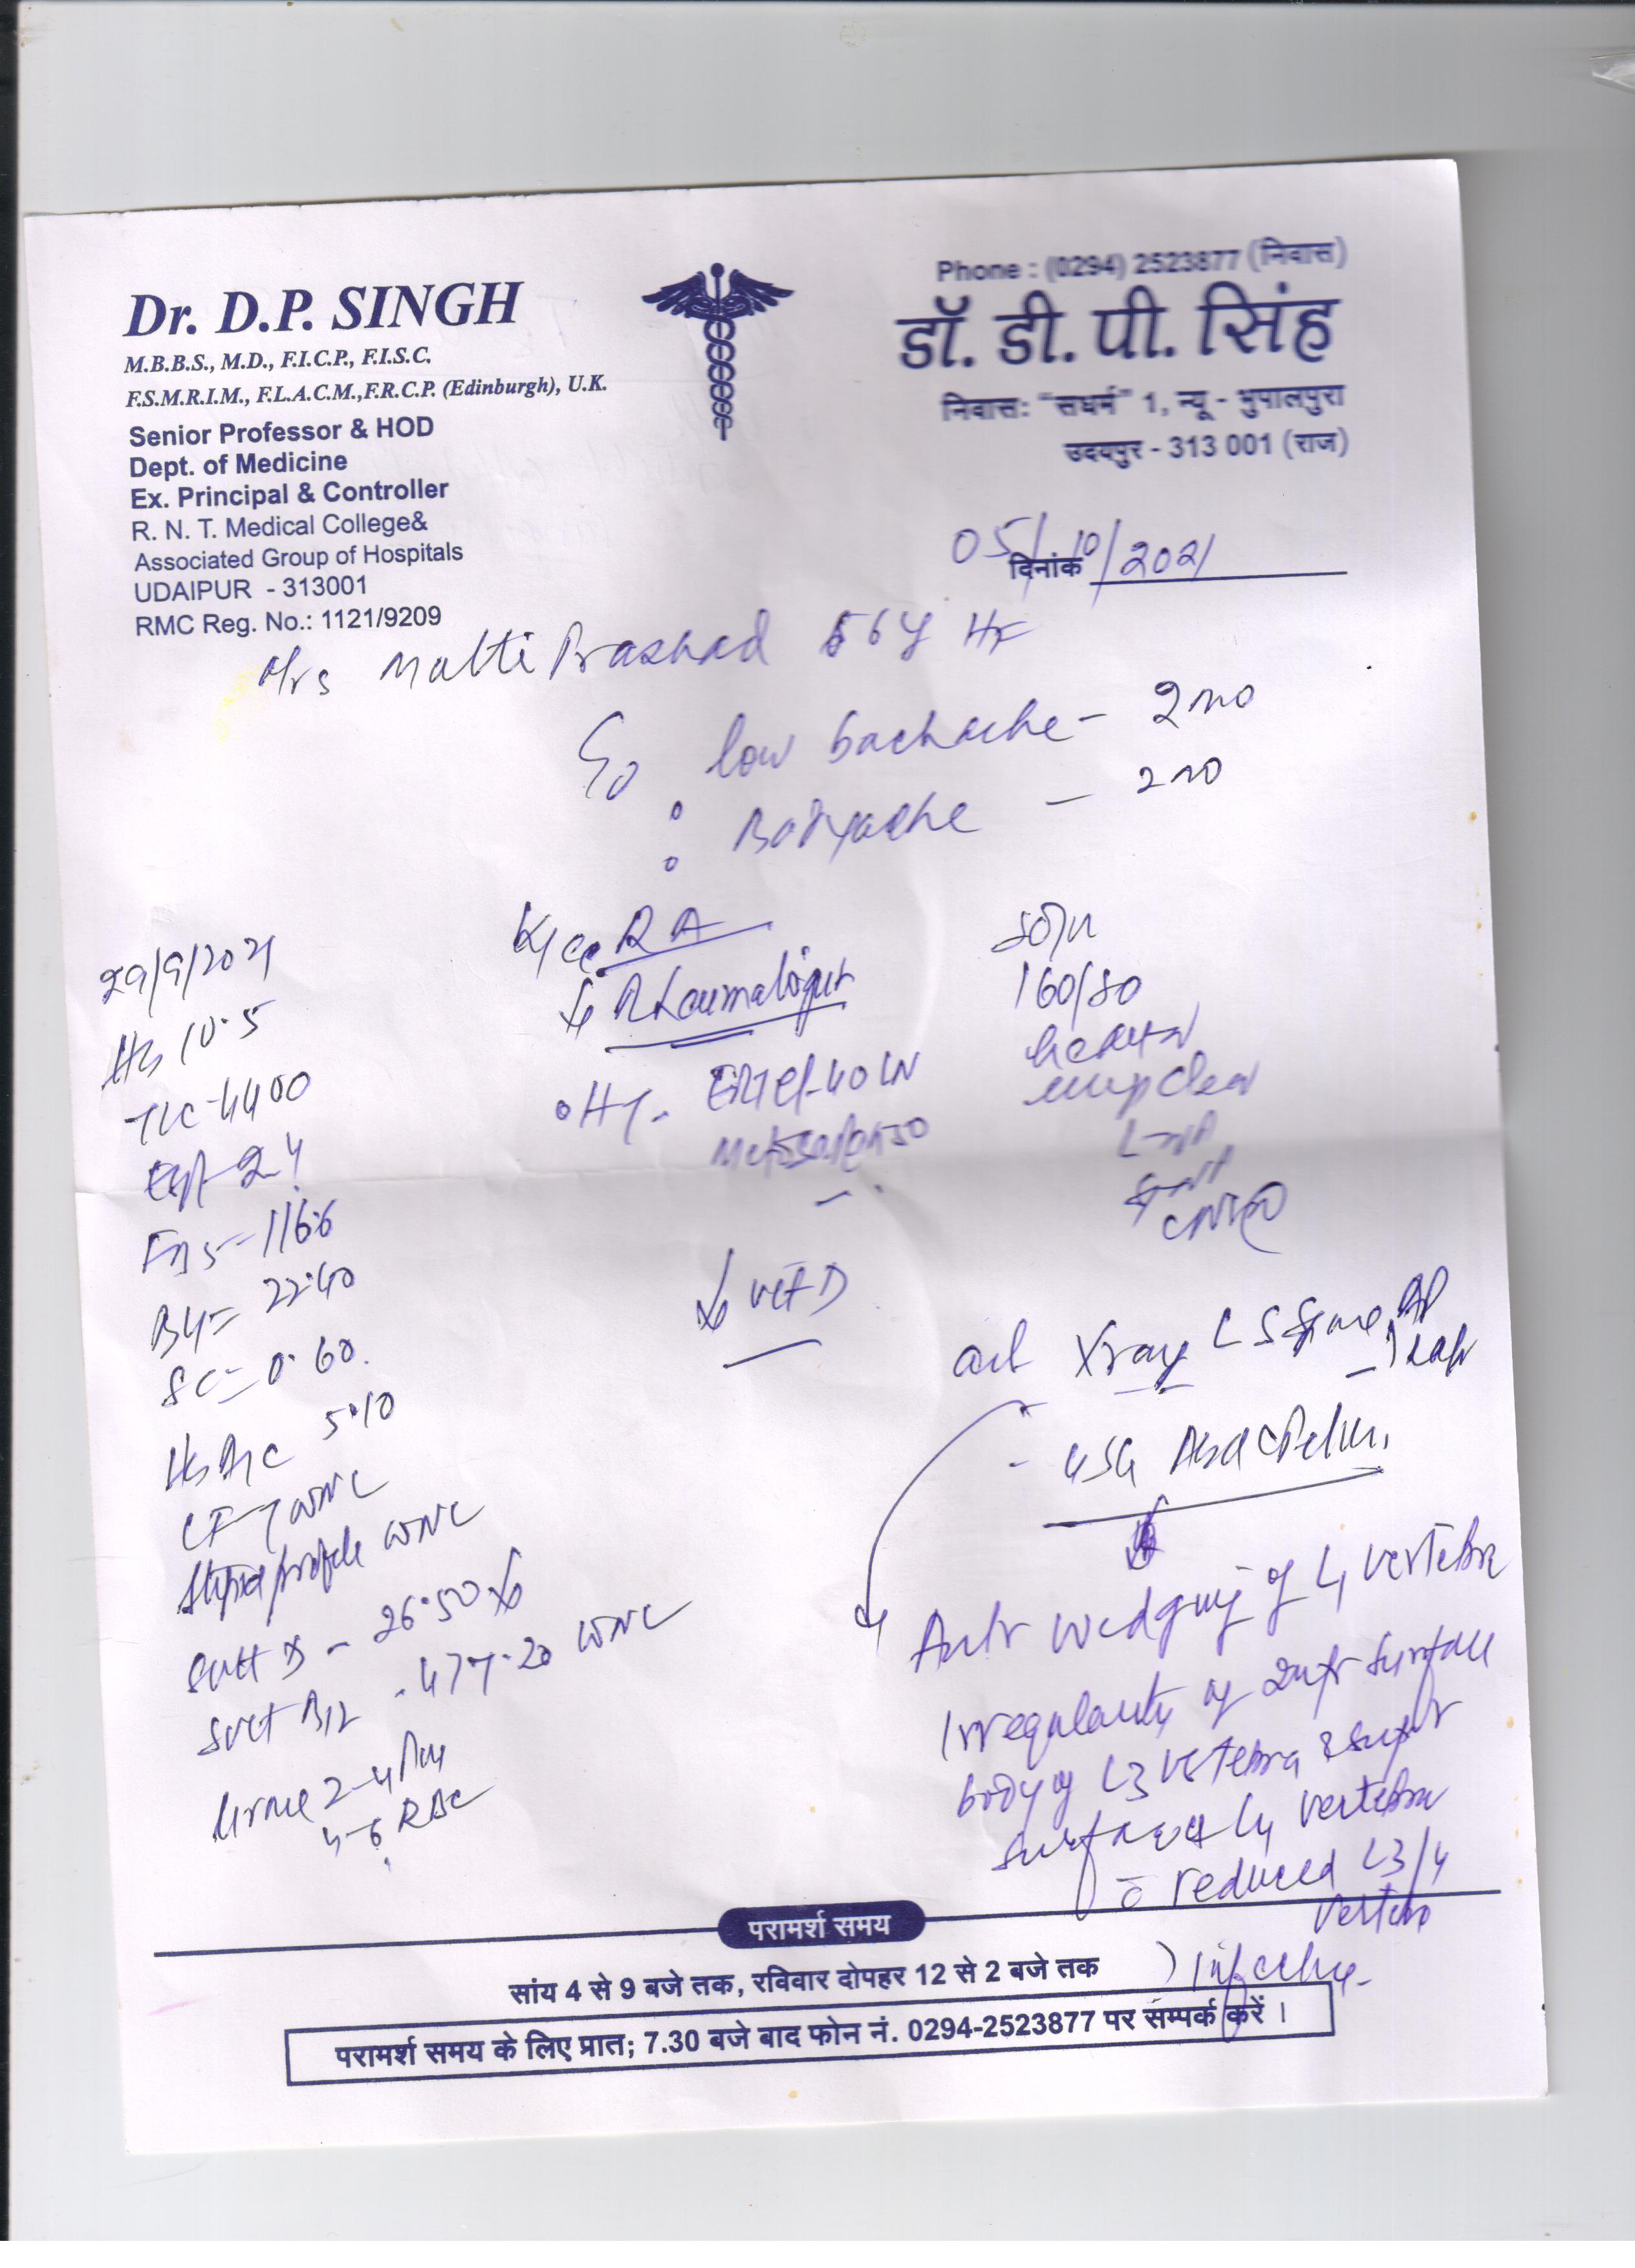 Phone : (0294) 2523877 (निवास)
Dr. D.P. SINGH
डॉ. डी. पी. सिंह
M.B.B.S., M.D., F.I.C.P., F.I.S.C.
F.S.M.R.I.M., F.L.A.C.M.,F.R.C.P. (Edinburgh), U.K.
निवास: "सधर्म" 1, न्यू - भुपालपुरा
उदयपुर - 313 001 (राज)
Senior Professor & HOD
Dept. of Medicine
Ex. Principal & Controller
R. N. T. Medical College&
Associated Group of Hospitals
UDAIPUR - 313001
RMC Reg. No.: 1121/9209
दिनांक 05/10/2021
Mrs Malti Prashad 56y
low backache - 2mo
Bodyache - 2mo
29/9/2021
Hb 10.5
TLC-4400
ESR-24
FBS-116.6
BU= 22.40
SC= 0.60
HbA1c 5.10
LFT WNL
profile WNL
S vit D - 26.50
S vit B12 - 477.20 WNL
Urine 2-4 Pus
4-6 RBC
K/c/o RA
Rheumatologist
HT - 40 LN
160/80
vit D
Xray L S Spine AP
Lat
- USG Abd Pelvis
Antr wedging of L4 vertebra
Irregularity of Infr surface
body of L3 vertebra & supr
surface of L4 vertebra
c̄ reduced L3/4
vertebr
Infective
परामर्श समय
सांय 4 से 9 बजे तक, रविवार दोपहर 12 से 2 बजे तक
परामर्श समय के लिए प्रात; 7.30 बजे बाद फोन नं. 0294-2523877 पर सम्पर्क करें ।